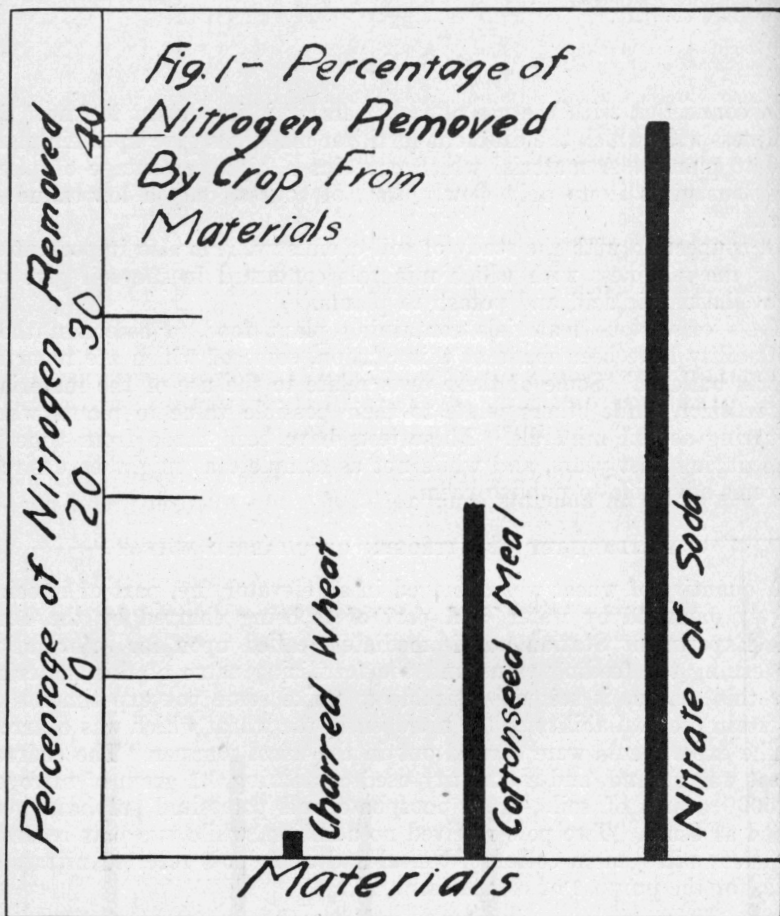 Fig. 1 - Percentage of
Nitrogen Removed
By Crop From
Materials
Percentage of Nitrogen Removed
40
30
20
10
Charred Wheat
Cottonseed Meal
Nitrate of Soda
Materials